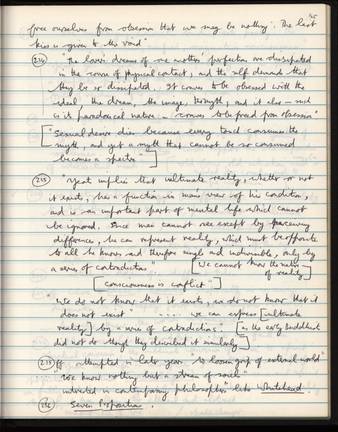 free ourselves from obsession that we may be nothing. The last
kiss is given to the void"
(214) "The lover's dreams of one another's perfection are dissipated
in the course of physical contact, and the self demands that
they be so dissipated. It comes to be obsessed with the
ideal, the dream, the image, the myth, and it also – such
is its paradoxical nature – comes to be freed from obsession"
["Sexual desire dies because every touch consumes the
myth, and yet a myth that cannot be so consumed
becomes a spectre"]
(215) "Yeats implies that ultimate reality, whether or not
it exists, has a function in man's view of his condition,
and is an important part of mental life which cannot
be ignored. Since man cannot see except by perceiving
difference, he can represent reality, which must be opposite
to all he knows and therefore single and indivisible, only by
a series of contradictions. [We cannot know the nature
of reality]
[consciousness is conflict"]
"We do not know that it exists, we do not know that it
does not exist" .... we can express [ultimate
reality] by a series of contradictions. [as the early Buddhists
did not do though they described it similarly]
attempted in later years "to loosen grip of external world"
"We know nothing but a stream of souls"
interested in contemporary philosophers like Whitehead
Seven Propositions.